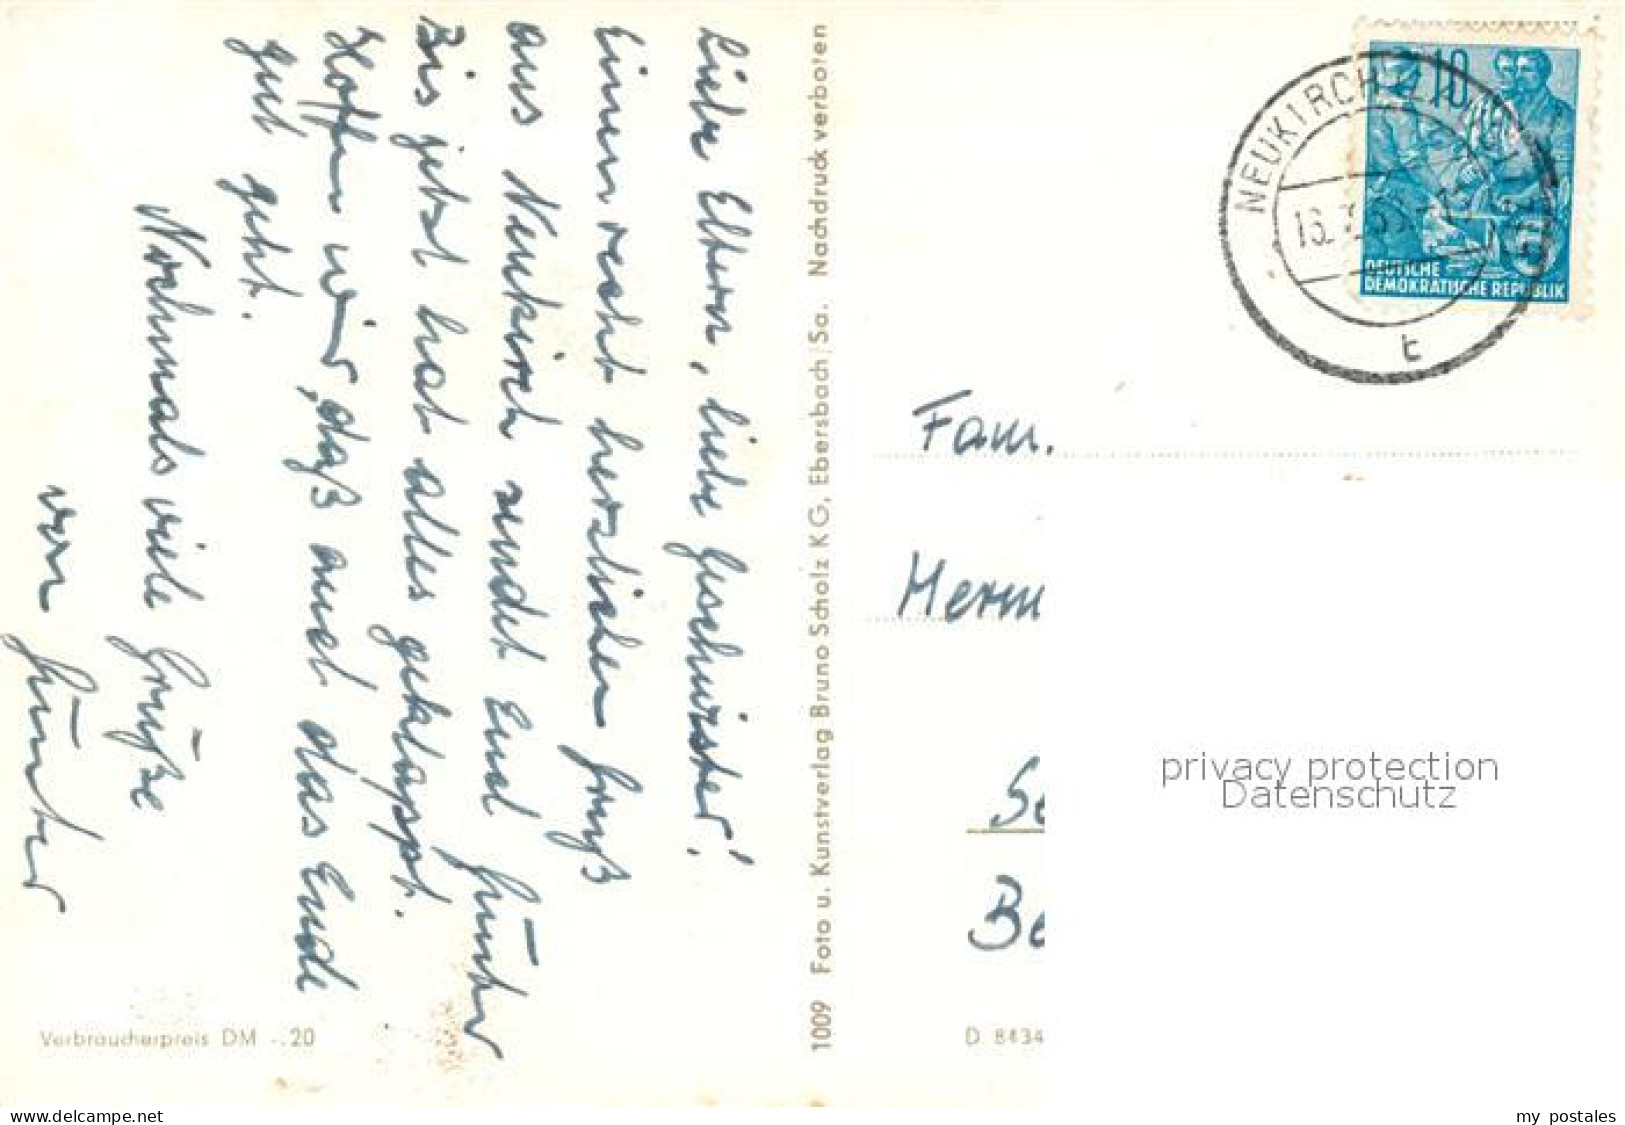 Liebe Eltern, liebe Geschwister!
Einen recht herzlichen Gruß
aus Neukirch sendet Euch Günter
Bis jetzt hat alles geklappt.
Hoffen wir, daß auch das Ende
gut geht.
Nochmals viele Grüße
von Günter
Verbraucherpreis DM -.20
1009 Foto u. Kunstverlag Bruno Scholz KG, Ebersbach/Sa. Nachdruck verboten
10
DEUTSCHE
DEMOKRATISCHE REPUBLIK
NEUKIRCH
t
Fam.
Herm
Se
Be
D. 8434
privacy protection
Datenschutz
www.delcampe.net
my_postales